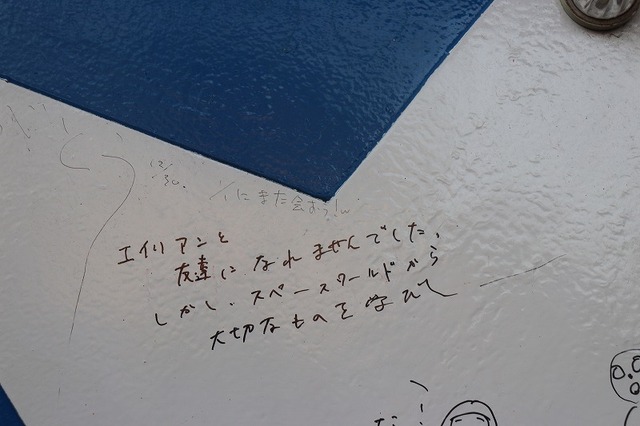 12/30.
1/1にまた会おう!w
エイリアンと
友達になれませんでした.
しかし、スペースワールドから
大切なものを学びし